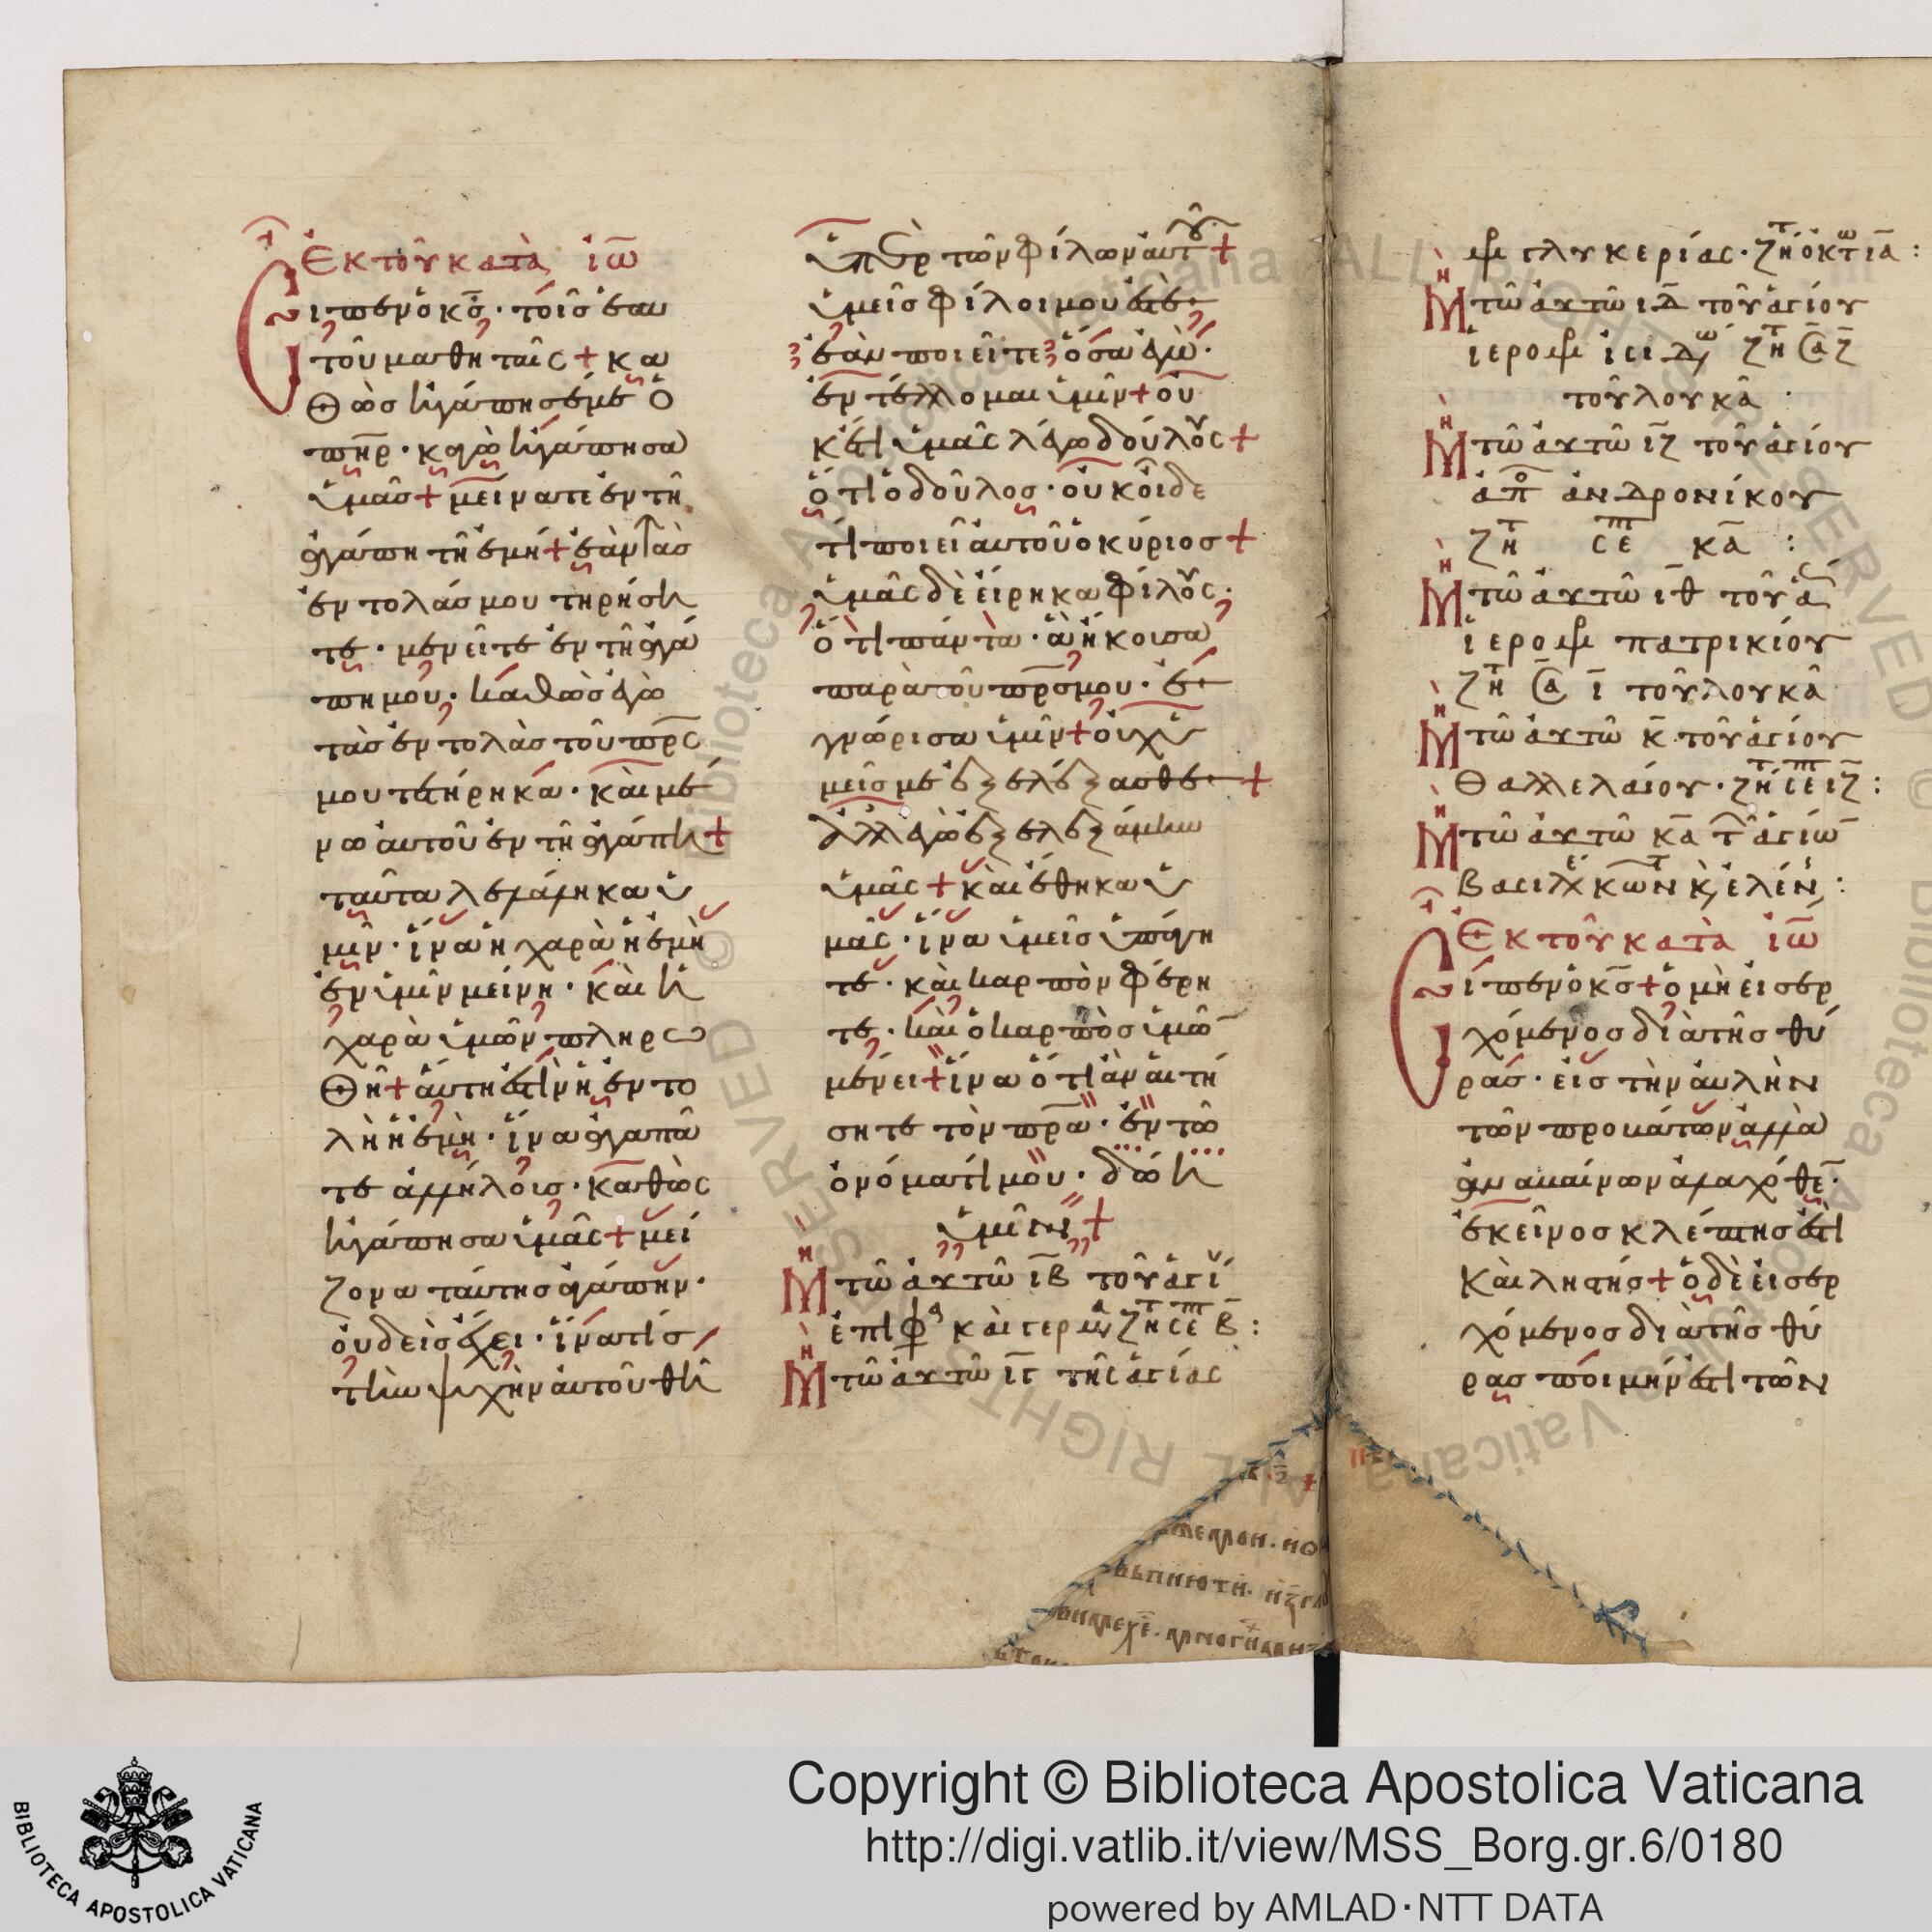 Ἐκ τοῦ κατὰ ἰω
Εἶπεν ὁ κς · τοῖς ἑαυ
τοῦ μαθηταῖς + κα
θὼς ἠγάπησέ με ὁ
πηρ · κἀγὼ ἠγάπησα
ὑμᾶς + μείνατε ἐν τῇ
ἀγάπη τῇ ἐμή + ἐὰν τὰς
ἐντολάς μου τηρήση
τε · μενεῖτε ἐν τῇ ἀγά
πη μου · καθὼς ἐγὼ
τὰς ἐντολὰς τοῦ πρς
μου τετήρηκα · καὶ μέ
νω αὐτοῦ ἐν τῇ ἀγάπη +
ταῦτα λελάληκα ὑ
μῖν · ἵνα ἡ χαρὰ ἡ ἐμὴ
ἐν ὑμῖν μείνη · καὶ ἡ
χαρὰ ὑμῶν πληρω
θῆ + αὕτη ἐστὶν ἡ ἐντο
λὴ ἡ ἐμὴ · ἵνα ἀγαπᾶ
τε ἀλλήλοις · καθὼς
ἠγάπησα ὑμᾶς + μεί
ζονα ταύτης ἀγάπην ·
οὐδεὶς ἔχει · ἵνα τίς
τὴν ψυχὴν αὐτοῦ θῆ
ὑπὲρ τῶν φίλων αὐτοῦ +
ὑμεῖς φίλοι μου ἐστέ ·
ἐὰν ποιεῖτε ὅσα ἐγὼ ·
ἐντέλλομαι ὑμῖν + οὐ
κέτι ὑμᾶς λέγω δούλους +
ὅτι ὁ δοῦλος · οὐκ οἶδε
τί ποιεῖ αὐτοῦ ὁ κύριος +
ὑμᾶς δὲ εἴρηκα φίλους ·
ὅτι πάντα · ἃ ἤκουσα
παρὰ τοῦ πρς μου · ἐ
γνώρισα ὑμῖν + οὐχ ὑ
μεῖς με ἐξελέξασθε · +
ἀλλ ἐγὼ ἐξελεξάμην
ὑμᾶς + καὶ ἔθηκα ὑ
μᾶς · ἵνα ὑμεῖς ὑπάγη
τε · καὶ καρπὸν φέρη
τε · καὶ ὁ καρπὸς ὑμῶ
μένει + ἵνα ὅτι ἂν αἰτή
σητε τὸν πρα · ἐν τῶ
ὀνόματί μου · δώη
ὑμῖν +
Μη τῶ αὐτῶ ιβ τοῦ ἁγί
ἐπιφα καὶ γερμ ζητ σε β :
Μη τῶ αὐτῶ ιγ τῆς ἁγίας
μρ γλυκερίας · ζητ ὀκτω ια :
Μη τῶ αὐτῶ ιδ τοῦ ἁγίου
ἱερομρ ἰσιδω ζητ Σα ζ
τοῦ λουκᾶ ·
Μη τῶ αὐτῶ ιζ τοῦ ἁγίου
ἀπο ἀνδρονίκου
ζητ σεπ κα :
Μη τῶ αὐτῶ ιθ τοῦ ἁ
ἱερομρ πατρικίου
ζητ Σα ι τοῦ λουκᾶ
Μη τῶ αὐτῶ κ τοῦ ἁγίου
Θαλλελαίου · ζητ σεπ ιζ :
Μη τῶ αὐτῶ κα τ ἁγίω
βασιλε κωντ κ, ἑλέν :
Ἐκ τοῦ κατὰ ἰω
Εἶπεν ὁ κς + ὁ μὴ εἰσερ
χόμενος διὰ τῆς θύ
ρας · εἰς τὴν αὐλὴν
τῶν προβάτων ἀλλὰ
ἀναβαίνων ἀλαχόθε ·
ἐκεῖνος κλέπης ἐστὶ
καὶ ληστής + ὁ δὲ εἰσερ
χόμενος διὰ τῆς θύ
ρας ποιμήν ἐστι τῶν
Copyright © Biblioteca Apostolica Vaticana
http://digi.vatlib.it/view/MSS_Borg.gr.6/0180
powered by AMLAD·NTT DATA
BIBLIOTECA APOSTOLICA VATICANA